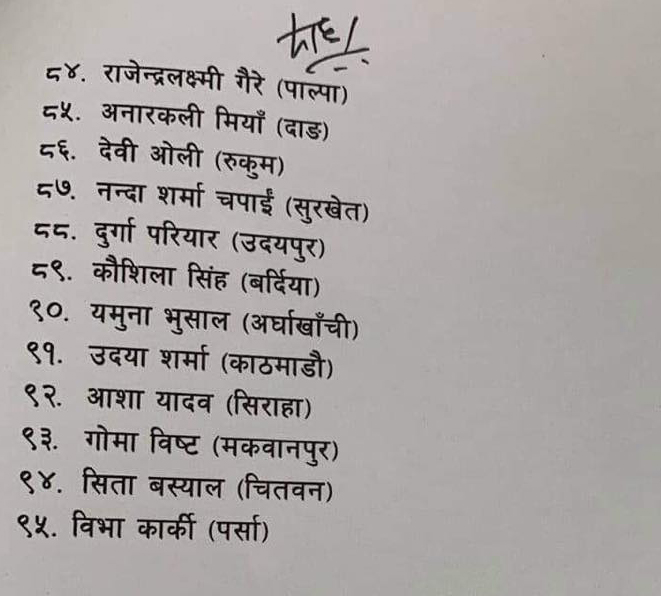 ८४. राजेन्द्रलक्ष्मी गैरे (पाल्पा)
८५. अनारकली मियाँ (दाङ)
८६. देवी ओली (रुकुम)
८७. नन्दा शर्मा चपाईं (सुरखेत)
८८. दुर्गा परियार (उदयपुर)
८९. कौशिला सिंह (बर्दिया)
९०. यमुना भुसाल (अर्घाखाँची)
९१. उदया शर्मा (काठमाडौ)
९२. आशा यादव (सिराहा)
९३. गोमा विष्ट (मकवानपुर)
९४. सिता बस्याल (चितवन)
९५. विभा कार्की (पर्सा)